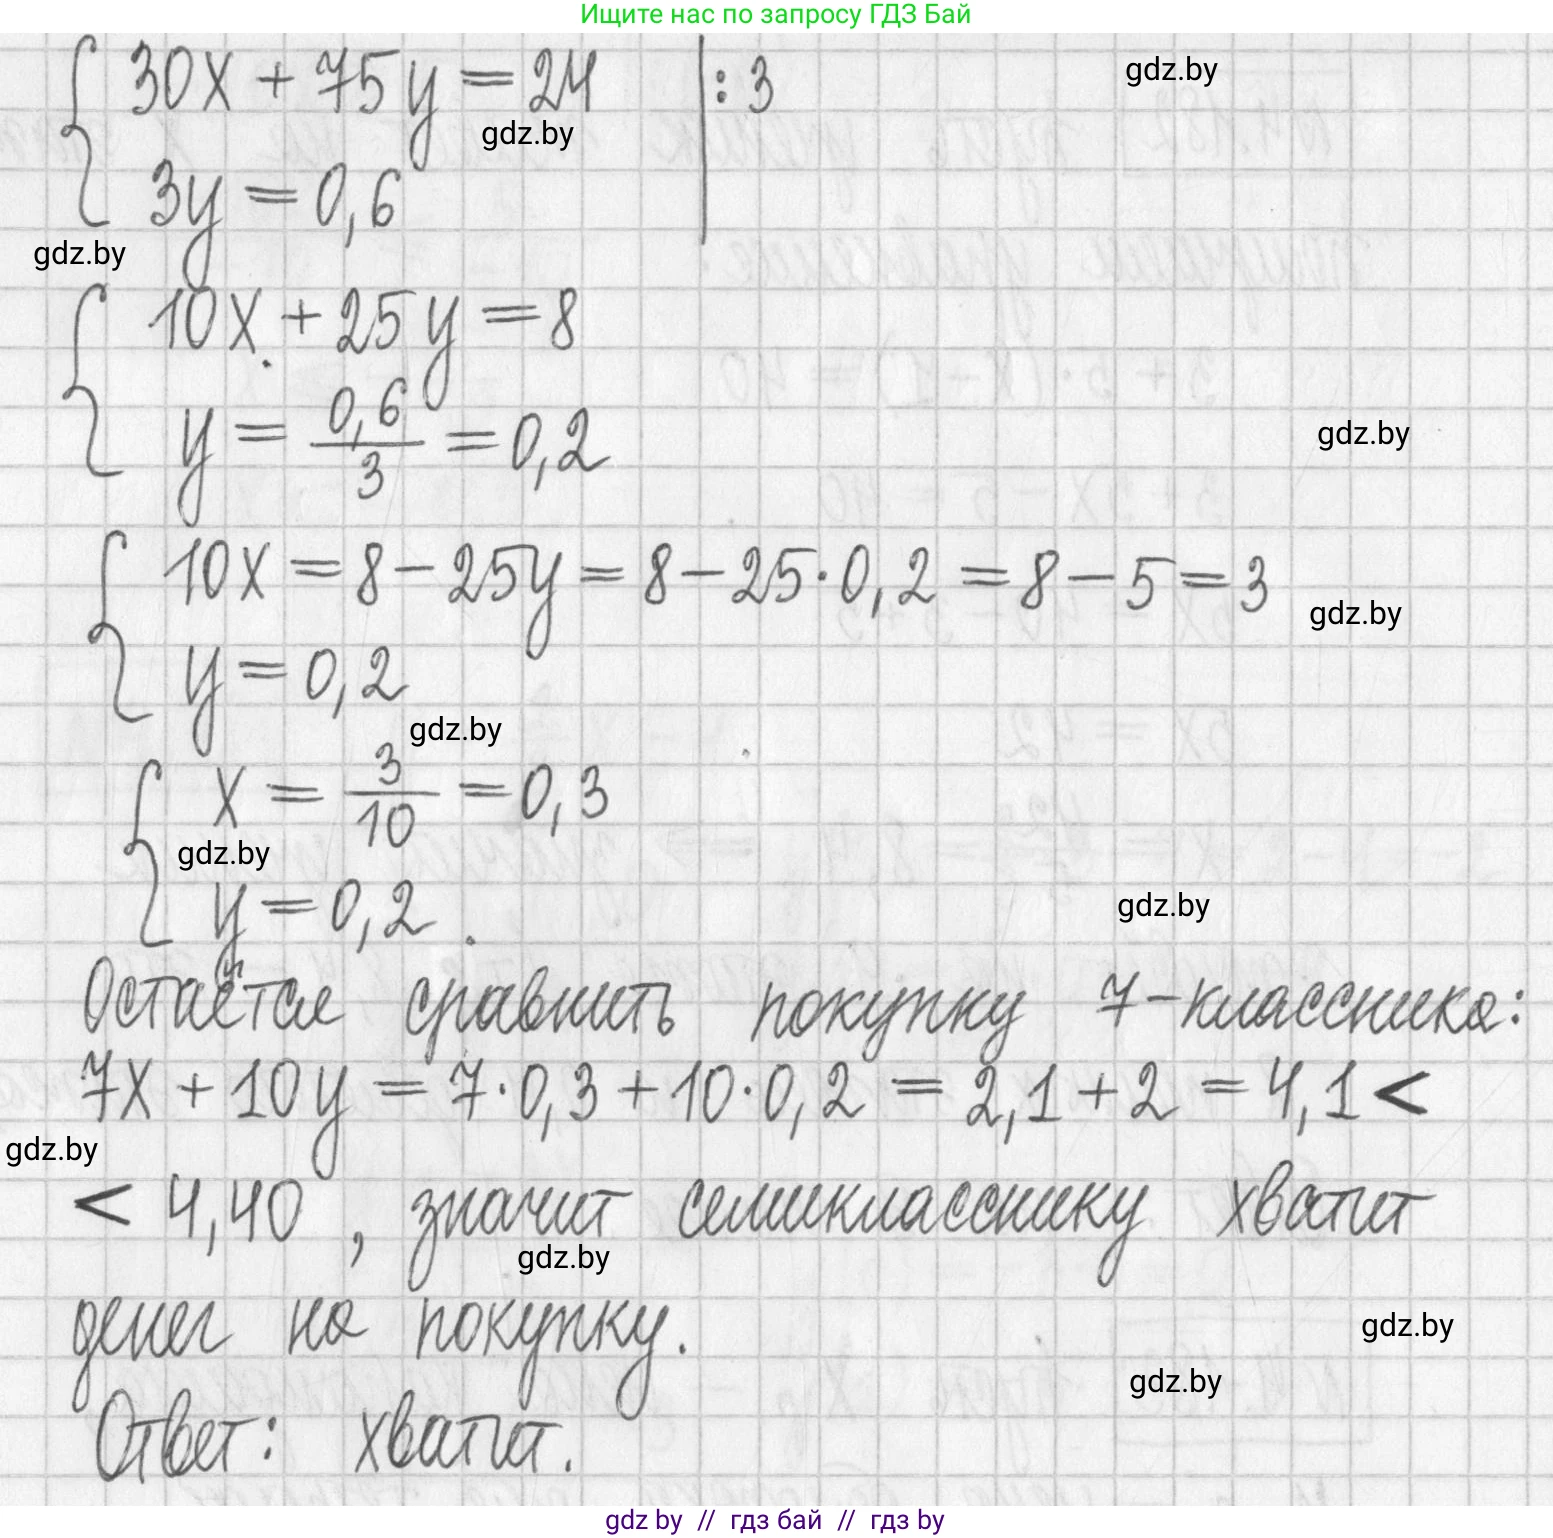 Ищите нас по запросу ГДЗ Бай
30x + 75y = 24 | : 3
gdz.by
gdz.by
3y = 0,6
gdz.by
10x + 25y = 8
y = 0,6/3 = 0,2
gdz.by
10x = 8 - 25y = 8 - 25·0,2 = 8 - 5 = 3
gdz.by
y = 0,2
gdz.by
x = 3/10 = 0,3
gdz.by
y = 0,2.
gdz.by
Остаётся сравнить покупку 7-классника:
7x + 10y = 7·0,3 + 10·0,2 = 2,1 + 2 = 4,1 <
gdz.by
< 4,40, значит семикласснику хватит
gdz.by
денег на покупку.
gdz.by
gdz.by
Ответ: хватит.
gdz by // гдз бай // гдз by